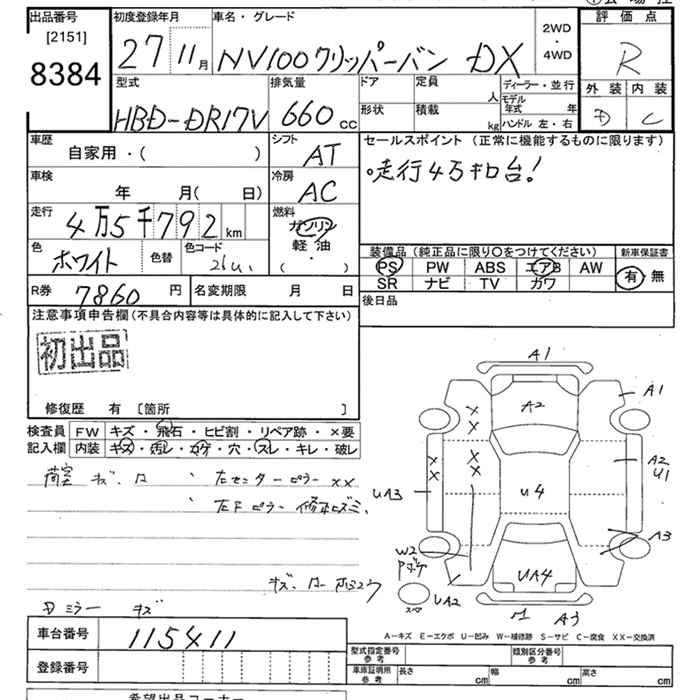 出品番号
[2151]
8384
初度登録年月
27 11月
車名・グレード
NV100クリッパーバン DX
2WD
・
4WD
評価点
R
外装 内装
D C
型式
HBD-DR17V
排気量
660 cc
ドア
定員
人
形状
積載
kg
ディーラー・並行
モデル年式 年
ハンドル 左・右
車歴
自家用・( )
シフト
AT
セールスポイント (正常に機能するものに限ります)
走行4万キロ台!
車検
年 月( 日)
冷房
AC
走行
4万5千792 km
燃料
ガソリン
軽油
( ・ )
色
ホワイト
色替
色コード
装備品 (純正品に限り〇をつけてください)
PS PW ABS エアB AW
SR ナビ TV ガワ
新車保証書
有・無
R券
7860 円
名変期限 月 日
後日品
注意事項申告欄(不具合内容等は具体的に記入して下さい)
初出品
修復歴 有 [箇所 ]
検査員
記入欄
FW キズ・飛石・ヒビ割・リペア跡・×要
内装 キズ・汚レ・コゲ・穴・スレ・キレ・破レ
荷室 キズ・
左センターピラー ××
左Fピラー
ミラー キズ
A1
A2
A1
A2
U1
UA3
U4
A3
W2
UA2
UA4
A3
スマ
A-キズ E-エクボ U-凹み W-補修跡 S-サビ C-腐食 XX-交換済
車台番号
115411
登録番号
型式指定番号
参考
類別区分番号
参考
車庫証明用
参考
長さ cm
幅 cm
高さ cm
希望出品コーナー